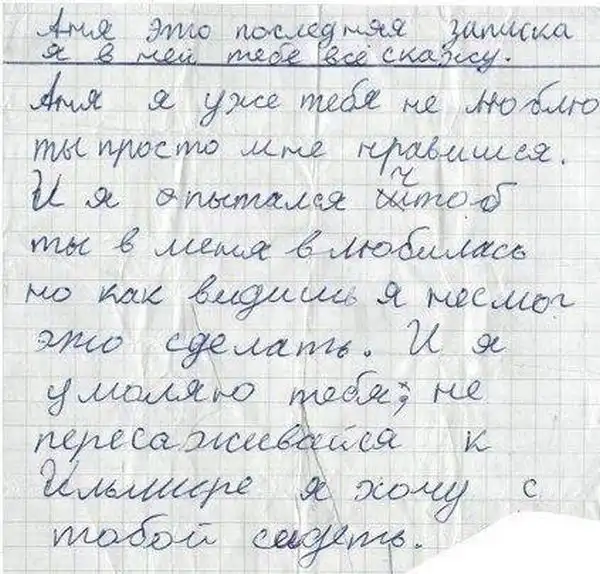 Аня это последняя записка
я в ней тебе всё скажу.
Аня я уже тебя не люблю
ты просто мне нравишся.
И я опытался чтоб
ты в меня влюбилась
но как видишь я несмог
это сделать. И я
умоляю тебя, не
пересаживайся к
Ильмире я хочу с
тобой сидеть.